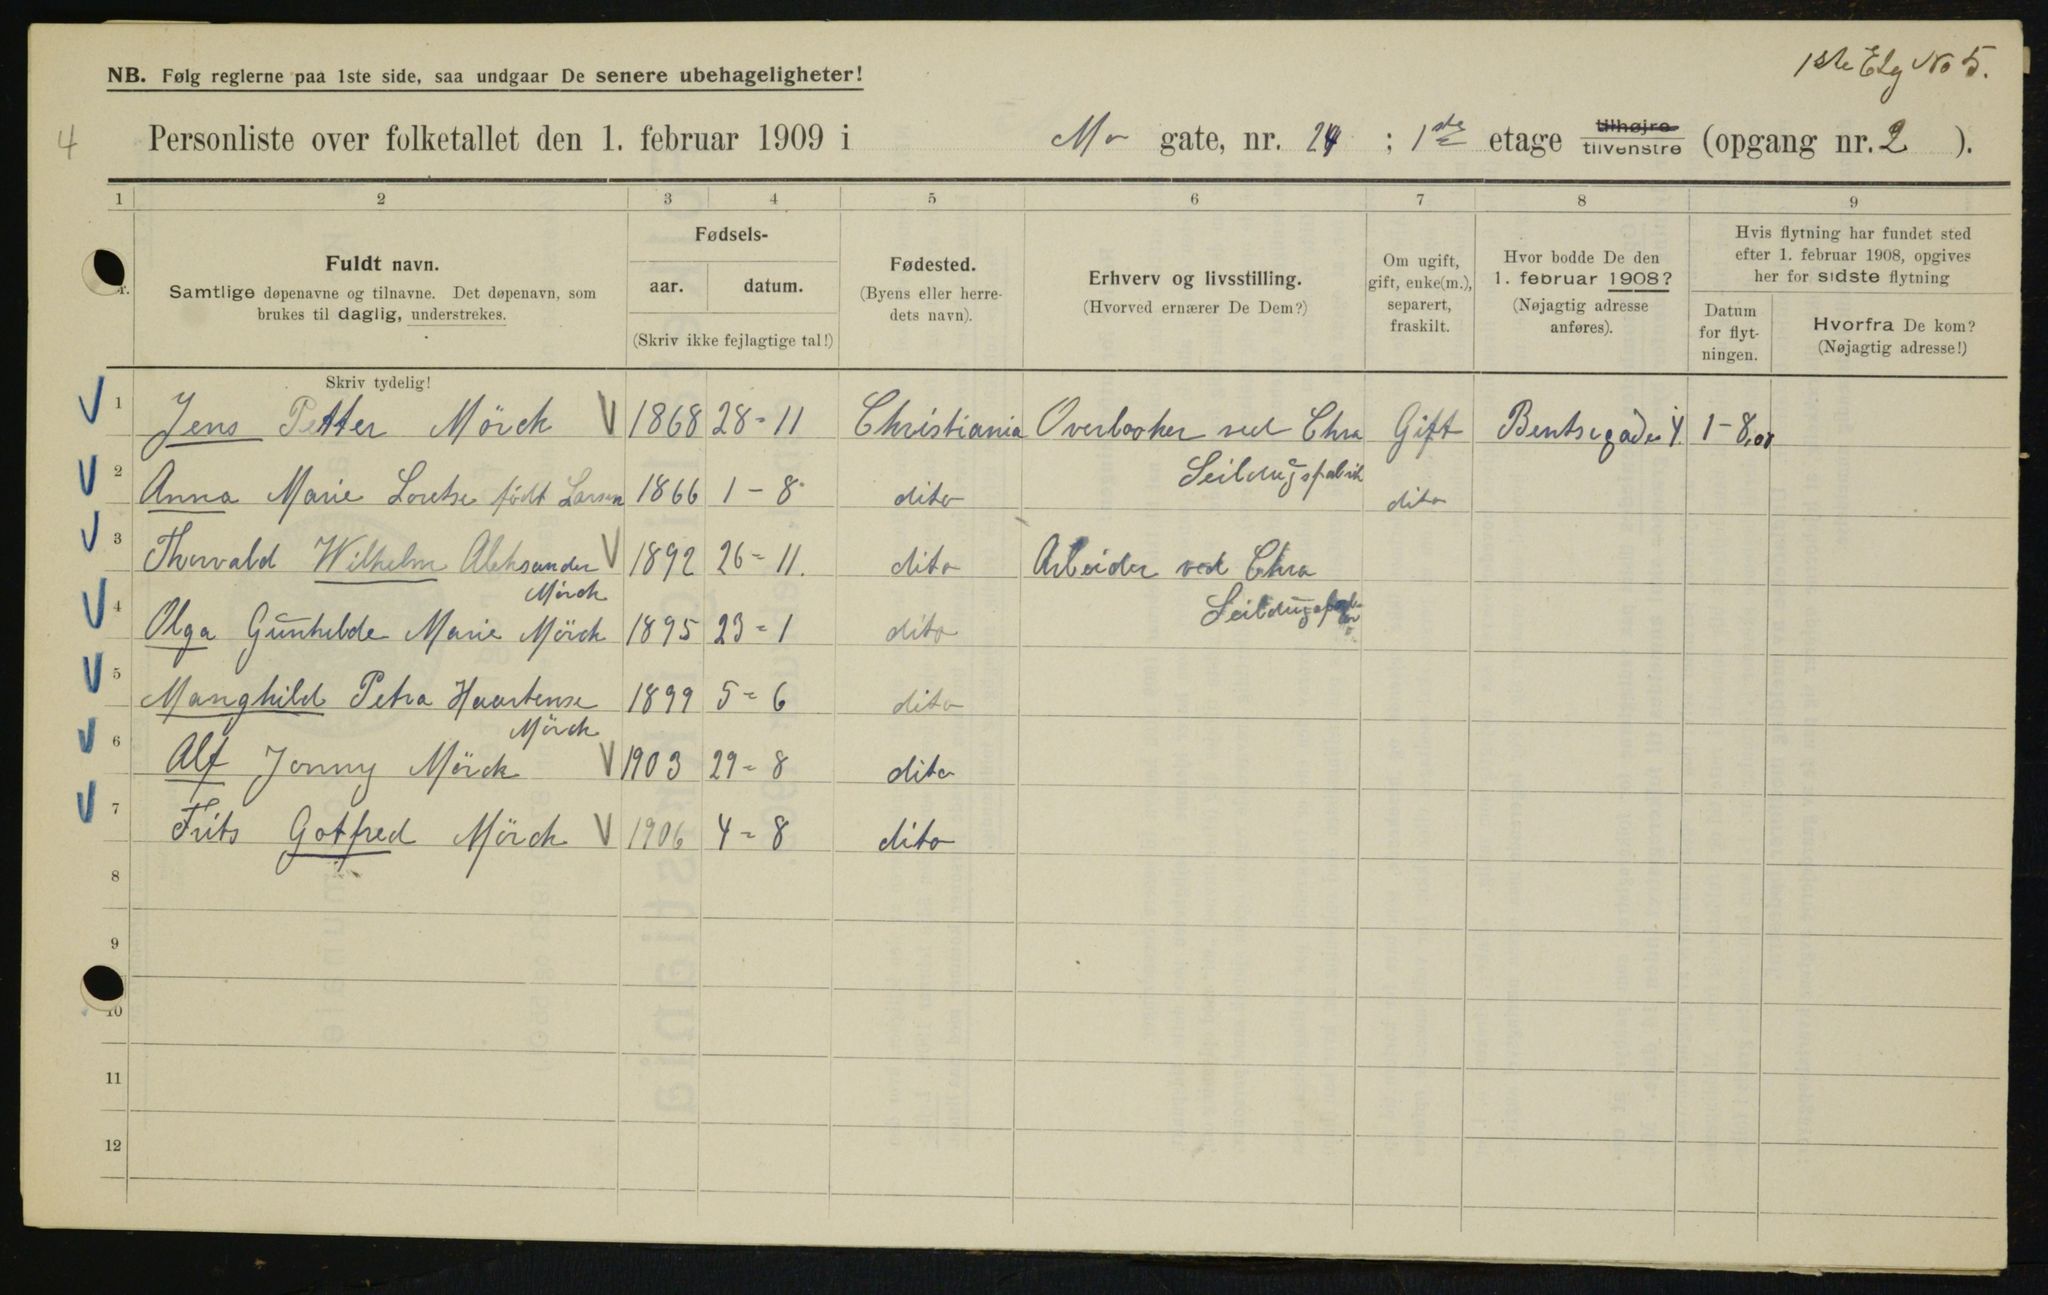 1ste Etg No 5.
NB. Følg reglerne paa 1ste side, saa undgaar De senere ubehageligheter!
4
Personliste over folketallet den 1. februar 1909 i Mo gate, nr. 24 ; 1ste etage tilhøjre tilvenstre (opgang nr. 2 ).
1 2 3 4 5 6 7 8 9
Fuldt navn.
Samtlige døpenavne og tilnavne. Det døpenavn, som
brukes til daglig, understrekes.
Fødsels-
aar. datum.
(Skriv ikke fejlagtige tal!)
Fødested.
(Byens eller herre-
dets navn).
Erhverv og livsstilling.
(Hvorved ernærer De Dem?)
Om ugift,
gift, enke(m.),
separert,
fraskilt.
Hvor bodde De den
1. februar 1908?
(Nøjagtig adresse
anføres).
Hvis flytning har fundet sted
efter 1. februar 1908, opgives
her for sidste flytning
Datum
for flyt-
ningen.
Hvorfra De kom?
(Nøjagtig adresse!)
Skriv tydelig!
1 Jens Petter Mörck 1868 28=11 Christiania Overlooker ved Chra Gift Bentsegade 4. 1-8.08
Seildugsfabrik
2 Anna Marie født Larsen 1866 1-8 dito dito
3 Thorvald Wilhelm Aleksander 1892 26=11. dito Arbeider ved Chra
Mörck
Seildugsfabr
4 Olga Gunhilde Marie Mörck 1895 23=1 dito
5 Manghild Petra Haartense 1899 5=6 dito
Mörck
6 Alf Jonny Mörck 1903 29=8 dito
7 Frits Gotfred Mörck 1906 4=8 dito
8
9
10
11
12